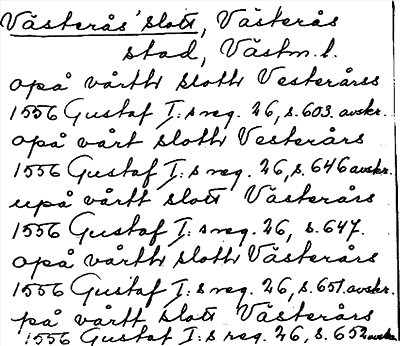 Västerås' slott, Västerås
stad, Västm. l.
opå vårth sloth Vesterårss
1556 Gustaf I:s reg. 26, s. 603. avskr.
opå vårt sloth Vesterårs
1556 Gustaf I:s reg. 26, s. 646 avskr.
upå vårtt slott Västerårs
1556 Gustaf I:s reg. 26, s. 647.
opå vårth sloth Västerårs
1556 Gustaf I:s reg. 26, s. 651. avskr.
på vårtt slott Västerårs
1556 Gustaf I:s reg. 26, s. 652 avskr.